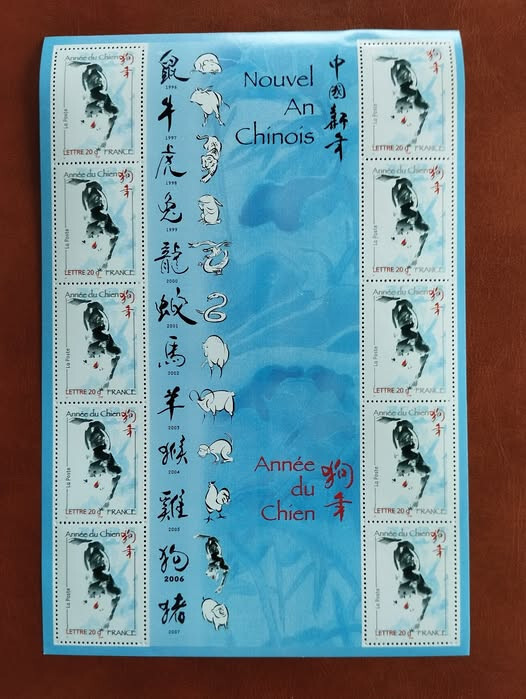 Année du Chien
狗年
La Poste
LETTRE 20 g FRANCE
Année du Chien
狗年
La Poste
LETTRE 20 g FRANCE
Année du Chien
狗年
La Poste
LETTRE 20 g FRANCE
Année du Chien
狗年
La Poste
LETTRE 20 g FRANCE
Année du Chien
狗年
La Poste
LETTRE 20 g FRANCE
鼠
1996
牛
1997
虎
1998
兔
1999
龍
2000
2001
馬
2002
羊
2003
猴
2004
雞
2005
狗
2006
猪
2007
Nouvel
An
Chinois
中國新年
Année
du
Chien
狗年
Année du Chien
狗年
La Poste
LETTRE 20 g FRANCE
Année du Chien
狗年
La Poste
LETTRE 20 g FRANCE
Année du Chien
狗年
La Poste
LETTRE 20 g FRANCE
Année du Chien
狗年
La Poste
LETTRE 20 g FRANCE
Année du Chien
狗年
La Poste
LETTRE 20 g FRANCE